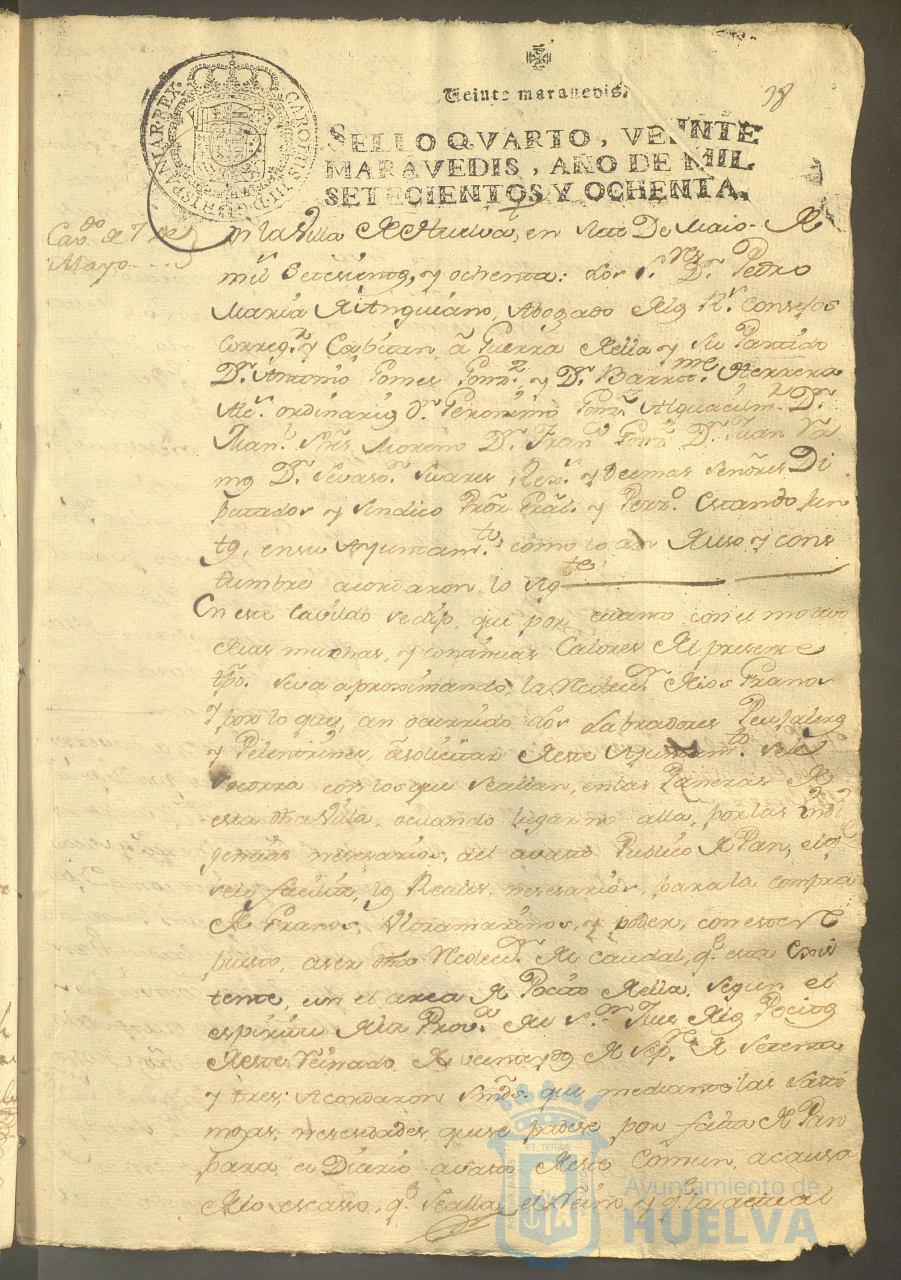 Veinte maravedis.
38
CAROLUS III D G HISPANIAR REX
SELLO QVARTO, VEINTE
MARAVEDIS, AÑO DE MIL
SETECIENTOS Y OCHENTA.
Cav.do de 7 de
Mayo
En la Villa de Huelva, en siete De Maio de
mil Setesientos, y ochenta: los S.res D.n Pedro
María de Anguiano, Abogado de los R.s Consejos
Correg.r y Capitan, â Guerra de ella y su Partido
D.n Antonio Gomes Gonz.z, y D.n Bartt.me Herrera
Alc.s ordinarios D.n Geronimo Alguacil m.r D.n
Man.l Moreno D.n Fran.co D.n Juan
D.n Sevas.n Suares Rex.s y demas señores Di
putados y Sindico Prór Grãl. y Perz.o Estando jun
tos, en su Ayuntam.to como lo an de uso y cons
tumbre acordaron lo sig.te
En este Cavildo se dijo, que por cuanto con el motivo
de las muchas, y continuas Calores del presente
tpo. se va aproximando, la Recolec.n de los Granos
y por lo que, an ocurrido los Labradores Peujaleros
y Pelentrines, â solicitar de este Ayuntam.to se le
socorra con los que se allan, en las Paneras de
esta dha Villa, o cuando lugar no alla, por las
gencias nesesarias, del avasto Publico de Pan, el q.
se les facilite, los Reales nesesarios, para la compra
de Granos, Ultramarinos, y poder, con este su
puesto, aser dha Recolec.n del caudal, q.e esta Exis
tente, en el arca de Pocito de ella, segun el
espiritu de la Prov.a del S.or Jues de los Pocitos
de este Reinado de veinte y dos de Sep.re de Setenta
y tres; Acordaron que mediante las
nesesidades, que se padese por falta de Pan
para el Diario avasto de este Comun, a causa
de lo escaso, q.e se alla el y q.e la actual
Ayuntamiento de
HUELVA